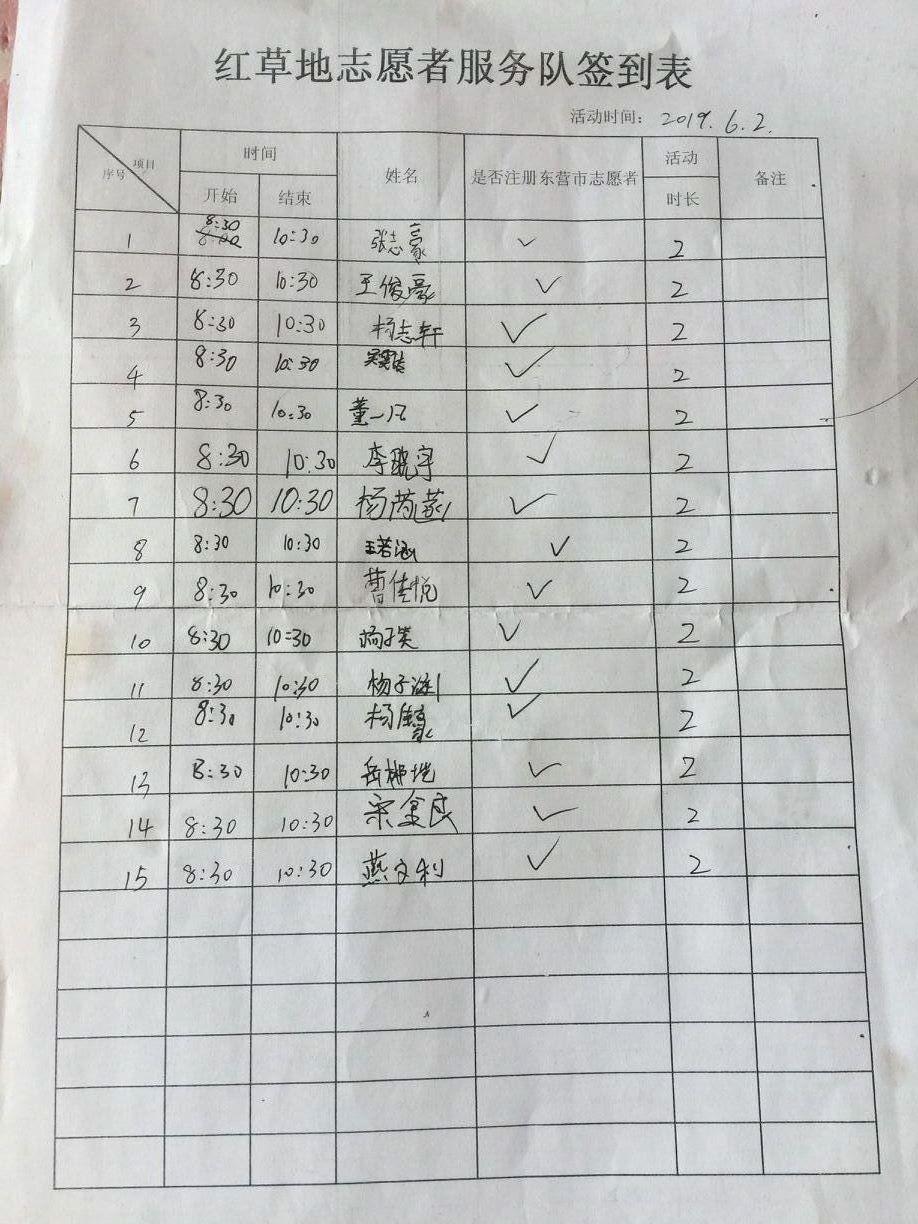 红草地志愿者服务队签到表
活动时间: 2019.6.2.
项目
序号
时间 姓名 是否注册东营市志愿者 活动 备注
开始 结束 时长
1 8:30 8:00 10:30 张志豪 ✓ 2
2 8:30 10:30 王俊豪 ✓ 2
3 8:30 10:30 杨志轩 ✓ 2
4 8:30 10:30 ✓ 2
5 8:30 10:30 董一凡 ✓ 2
6 8:30 10:30 李晓宇 ✓ 2
7 8:30 10:30 杨芮 ✓ 2
8 8:30 10:30 王若涵 ✓ 2
9 8:30 10:30 曹佳悦 ✓ 2
10 8:30 10:30 杨子 ✓ 2
11 8:30 10:30 杨子涵 ✓ 2
12 8:30 10:30 杨 ✓ 2
13 8:30 10:30 岳 ✓ 2
14 8:30 10:30 宋 ✓ 2
15 8:30 10:30 燕文利 ✓ 2